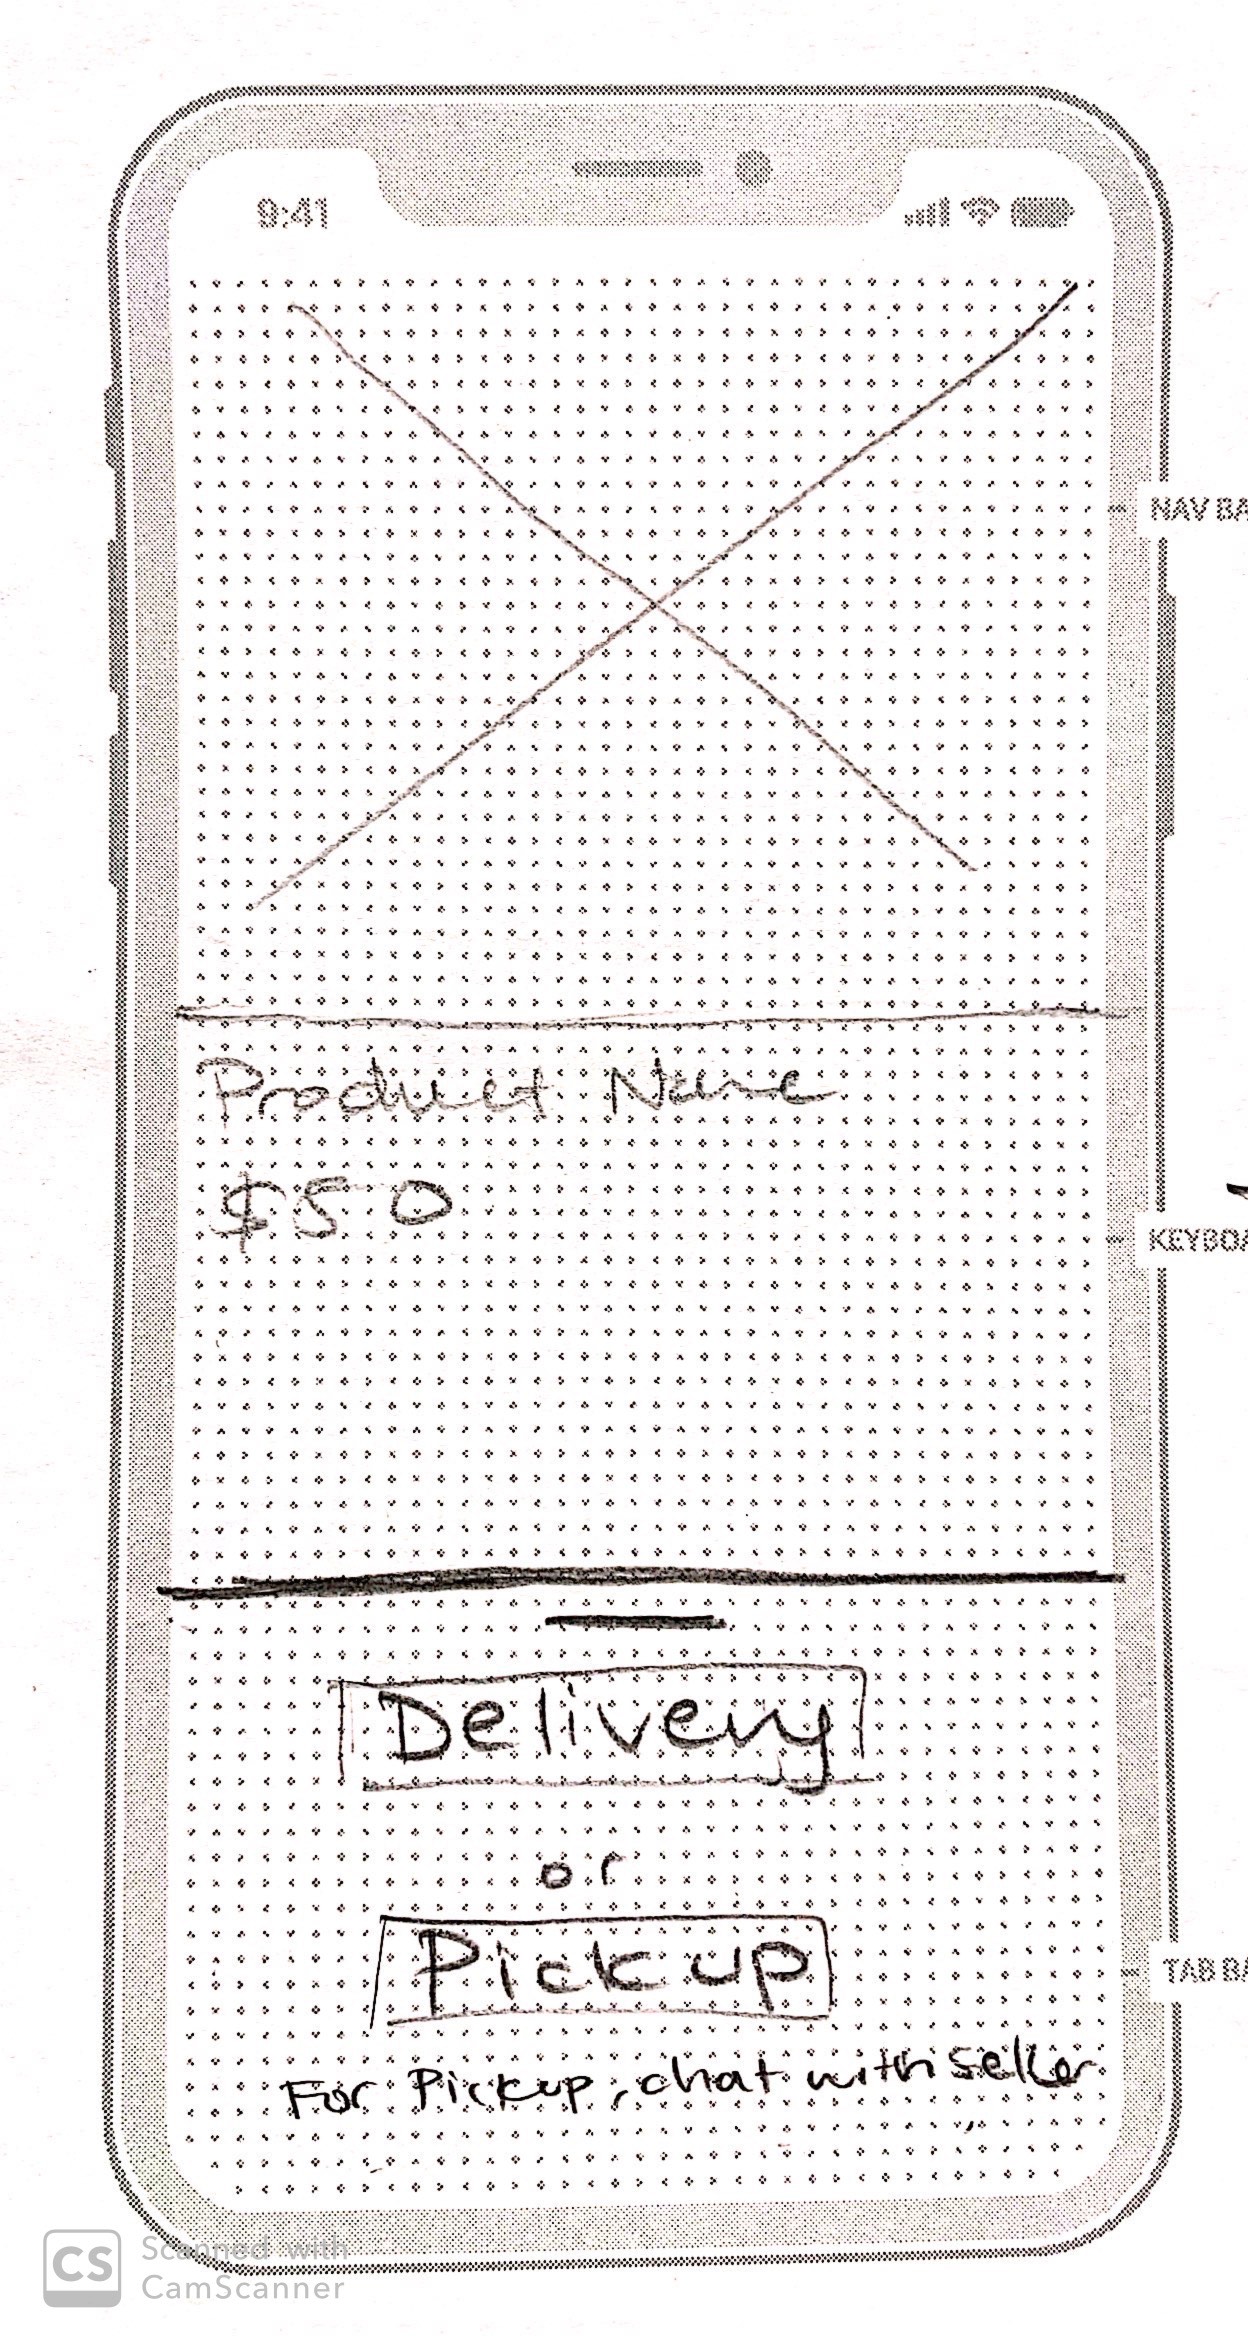 9:41
NAV BA
Product Name
$50
KEYBOA
Delivery
or
Pickup
TAB BA
For Pickup, chat with seller
CS Scanned with
CamScanner